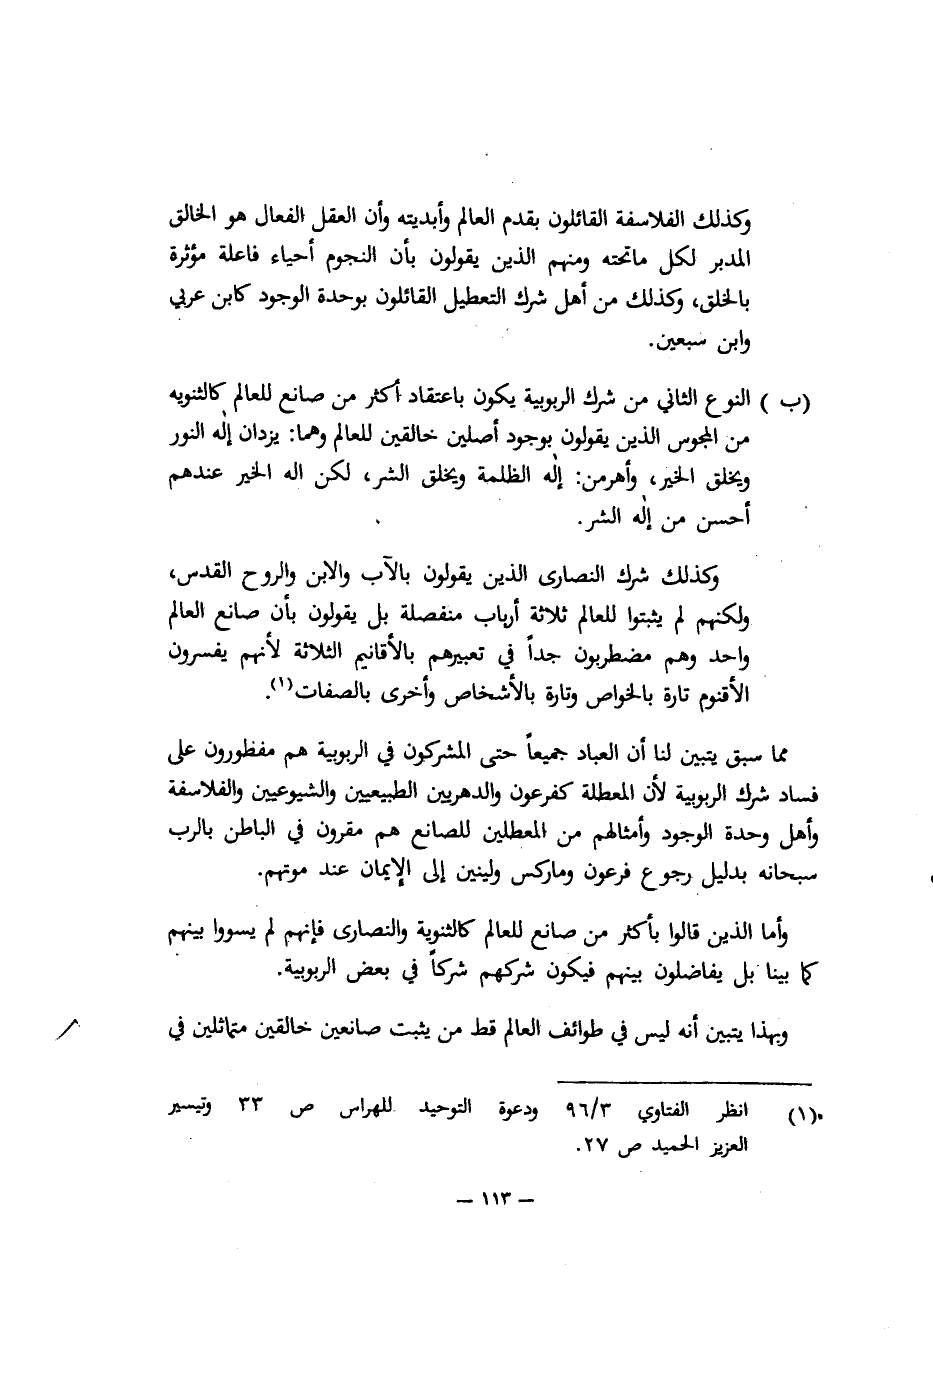 وكذلك الفلاسفة القائلون بقدم العالم وأبديته وأن العقل الفعال هو الخالق
المدبر لكل ماتحته ومنهم الذين يقولون بأن النجوم أحياء فاعلة مؤثرة
بالخلق، وكذلك من أهل شرك التعطيل القائلون بوحدة الوجود كابن عربي
وابن سبعين.
(ب) النوع الثاني من شرك الربوبية يكون باعتقاد أكثر من صانع للعالم كالثنويه
من المجوس الذين يقولون بوجود أصلين خالقين للعالم وهما: يزدان إله النور
ويخلق الخير، وأهرمن: إله الظلمة ويخلق الشر، لكن اله الخير عندهم
أحسن من إله الشر.
وكذلك شرك النصارى الذين يقولون بالآب والابن والروح القدس،
ولكنهم لم يثبتوا للعالم ثلاثة أرباب منفصلة بل يقولون بأن صانع العالم
واحد وهم مضطربون جداً في تعبيرهم بالأقانيم الثلاثة لأنهم يفسرون
الأقنوم تارة بالخواص وتارة بالأشخاص وأخرى بالصفات(١).
مما سبق يتبين لنا أن العباد جميعاً حتى المشركون في الربوبية هم مفظورون على
فساد شرك الربوبية لأن المعطلة كفرعون والدهريين الطبيعيين والشيوعيين والفلاسفة
وأهل وحدة الوجود وأمثالهم من المعطلين للصانع هم مقرون في الباطن بالرب
سبحانه بدليل رجوع فرعون وماركس ولينين إلى الإيمان عند موتهم.
وأما الذين قالوا بأكثر من صانع للعالم كالثنوية والنصارى فإنهم لم يسووا بينهم
كما بينا بل يفاضلون بينهم فيكون شركهم شركاً في بعض الربوبية.
وبهذا يتبين أنه ليس في طوائف العالم قط من يثبت صانعين خالقين متماثلين في
(١) انظر الفتاوي ٩٦/٣ ودعوة التوحيد للهراس ص ٣٣ وتيسير
العزيز الحميد ص ٢٧.
— ١١٣ —